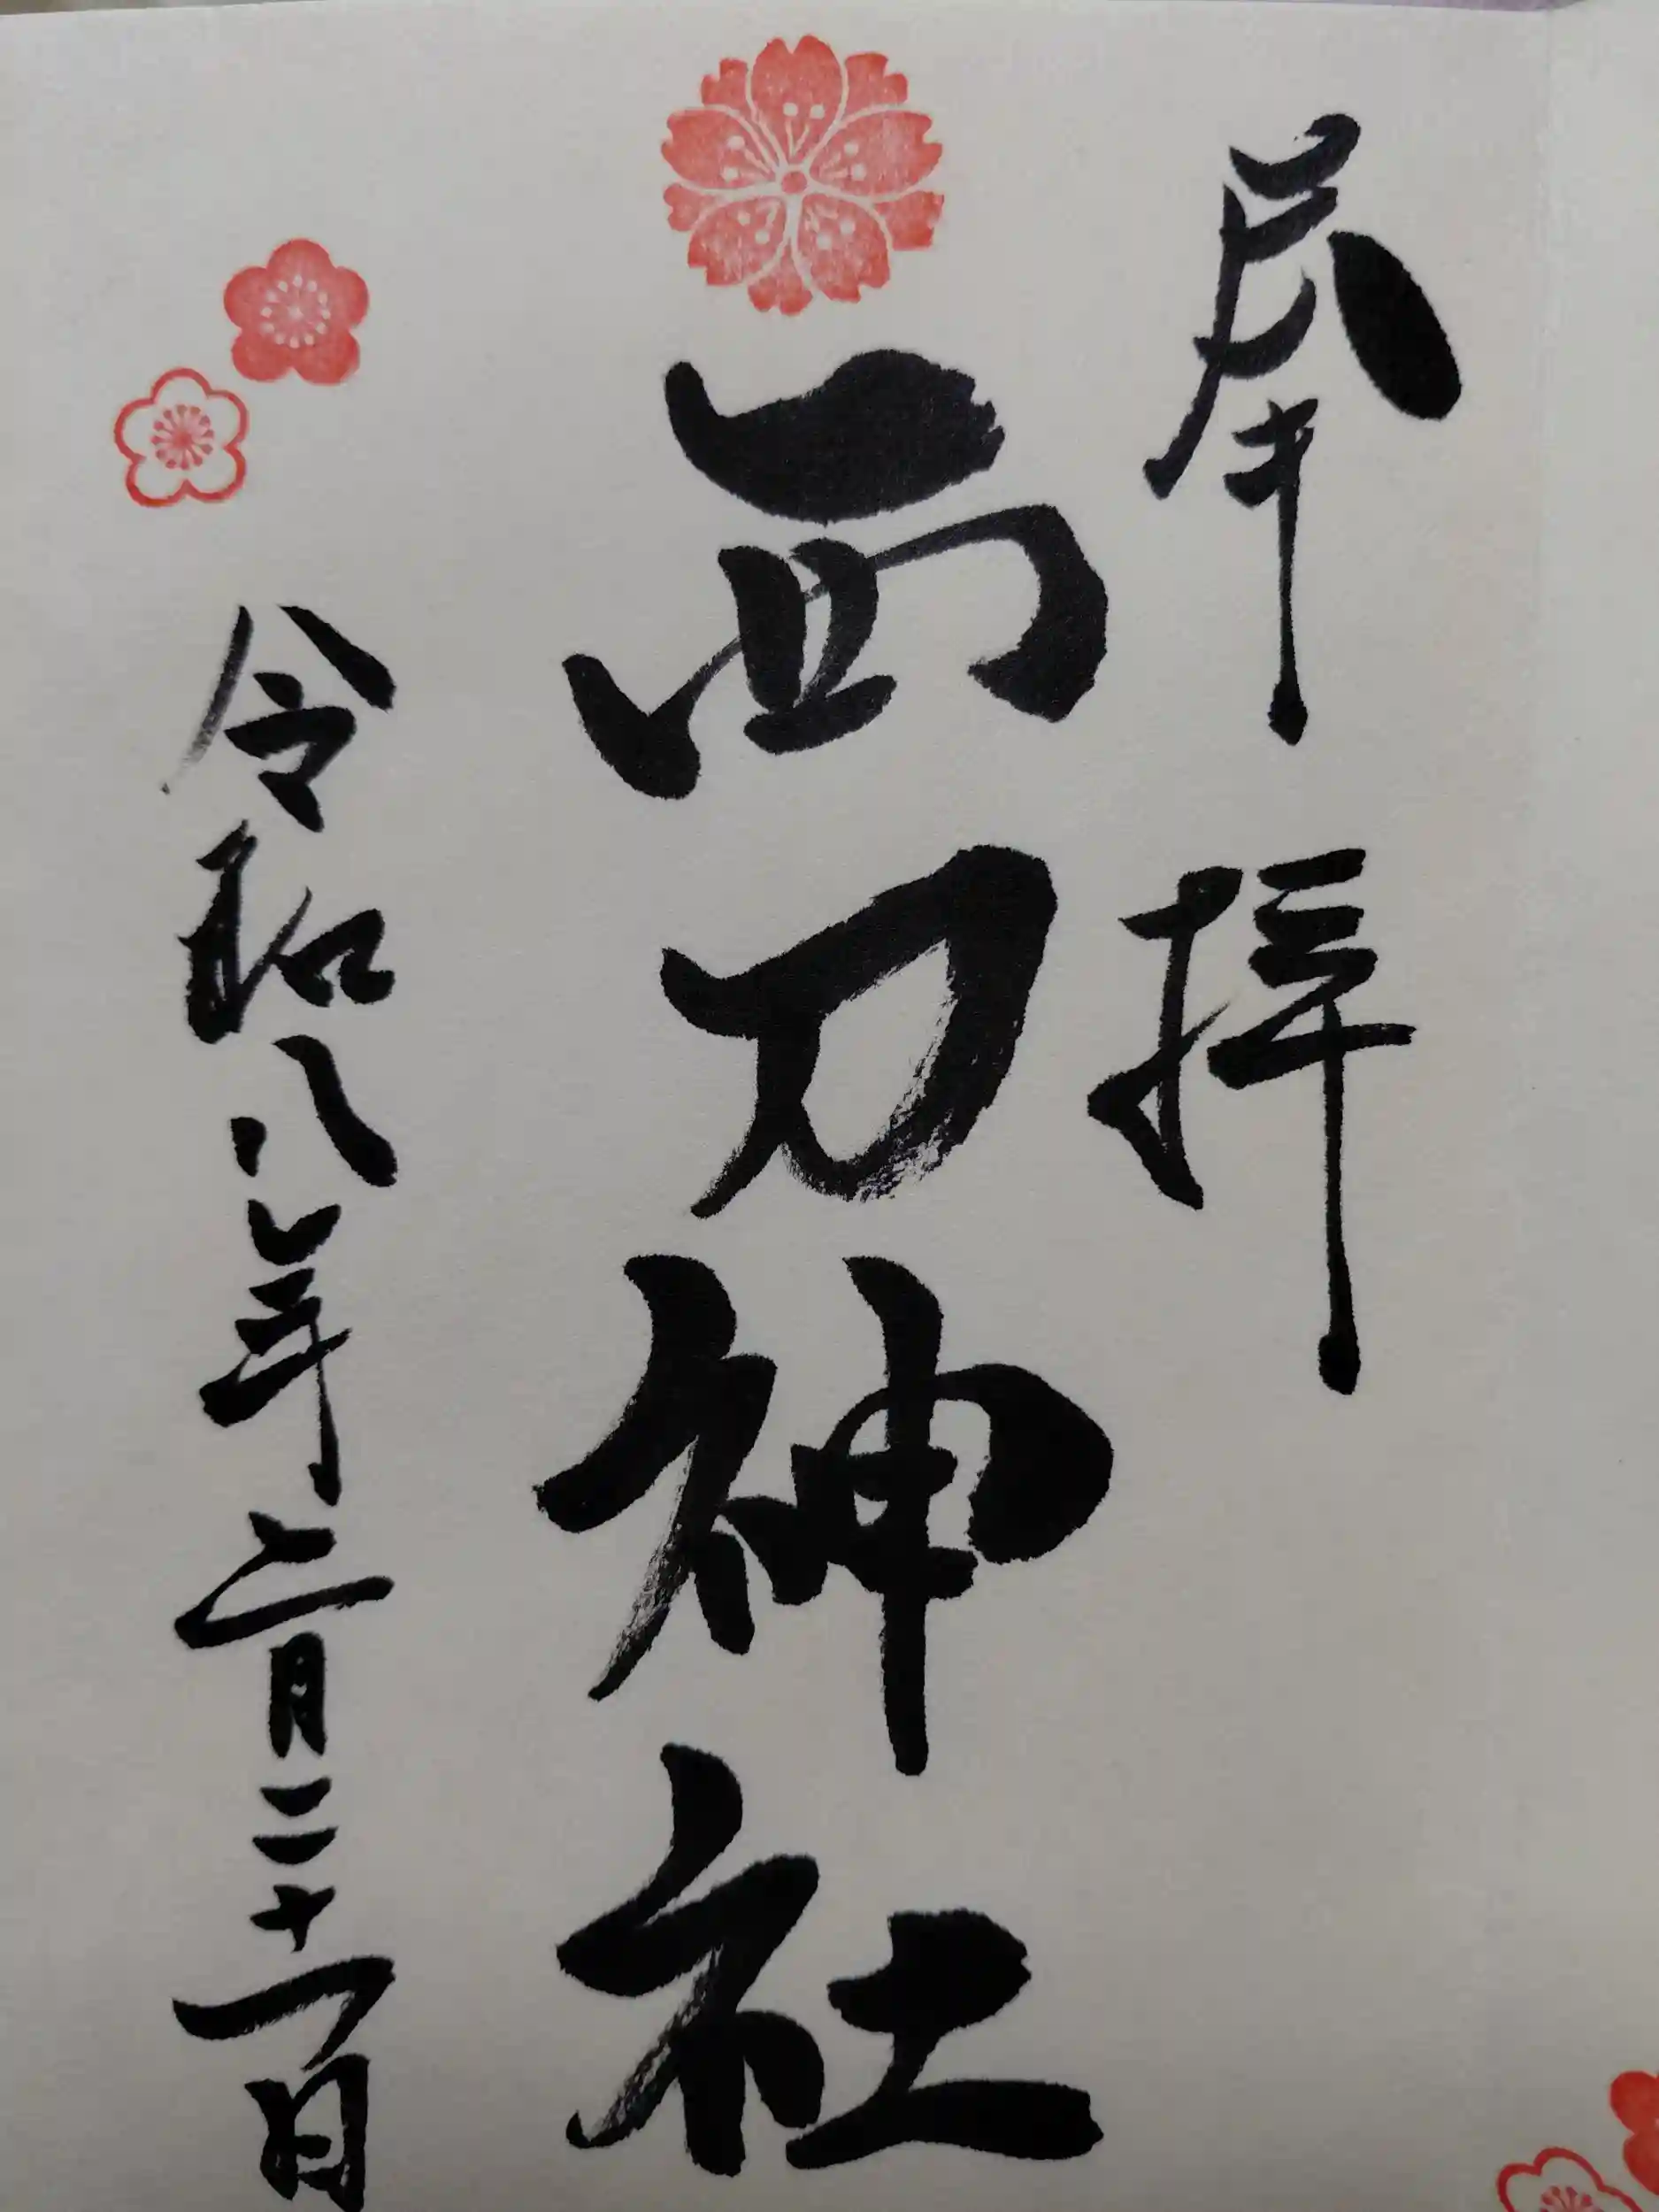 奉拝
西刀神社
令和八年二月二十一日